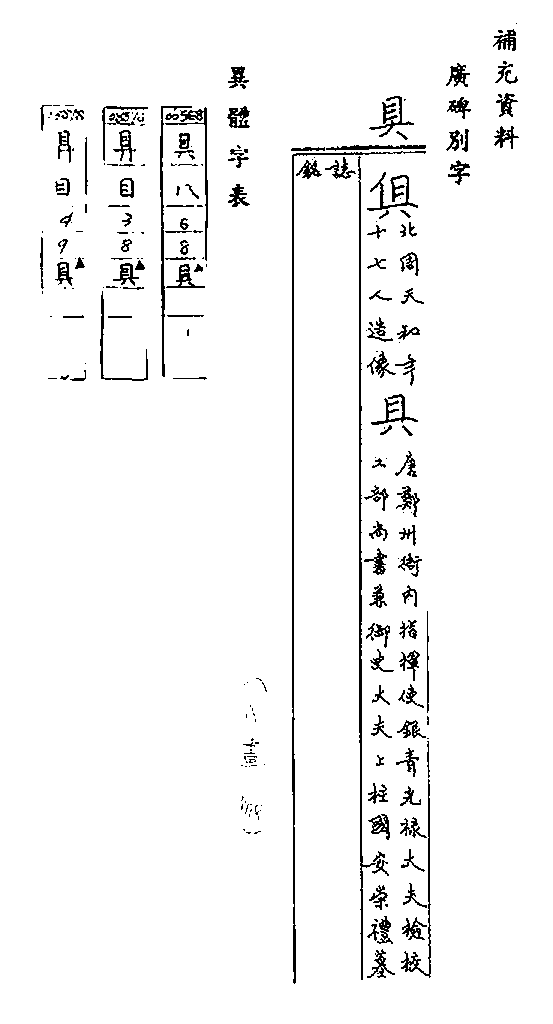 補充資料
廣碑別字
具
俱
北周天和年
十七人造像
具
唐鄭州衙內指揮使銀青光祿大夫檢校
工部尚書兼御史大夫上柱國安榮禮墓
誌銘
異體字表
00568
具
八
6
8
具▲
目
3
8
具▲
目
4
9
具▲